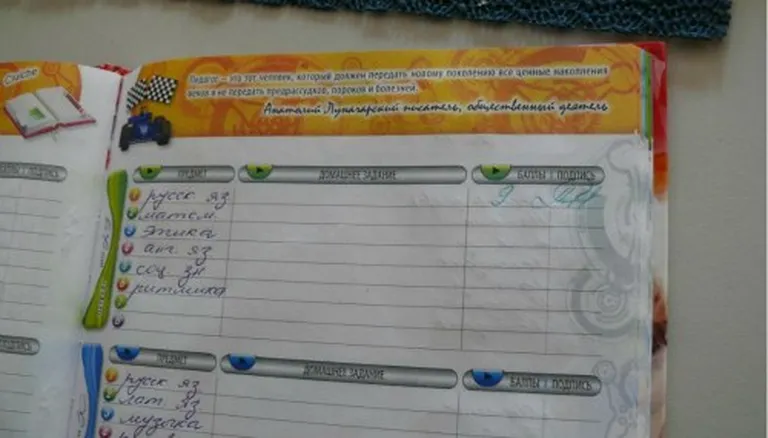 Педагог – эта тот человек, который должен передать новому поколению все ценные накопления
веков и не передать предрассудков, пороков и болезней.
Анатолий Луначарский писатель, общественный деятель
ПРЕДМЕТ ДОМАШНЕЕ ЗАДАНИЕ БАЛЛЫ | ПОДПИСЬ
русск яз
матем
этика
анг яз
соц зн
ритмика
ПРЕДМЕТ ДОМАШНЕЕ ЗАДАНИЕ БАЛЛЫ | ПОДПИСЬ
русск яз
лат яз
музыка